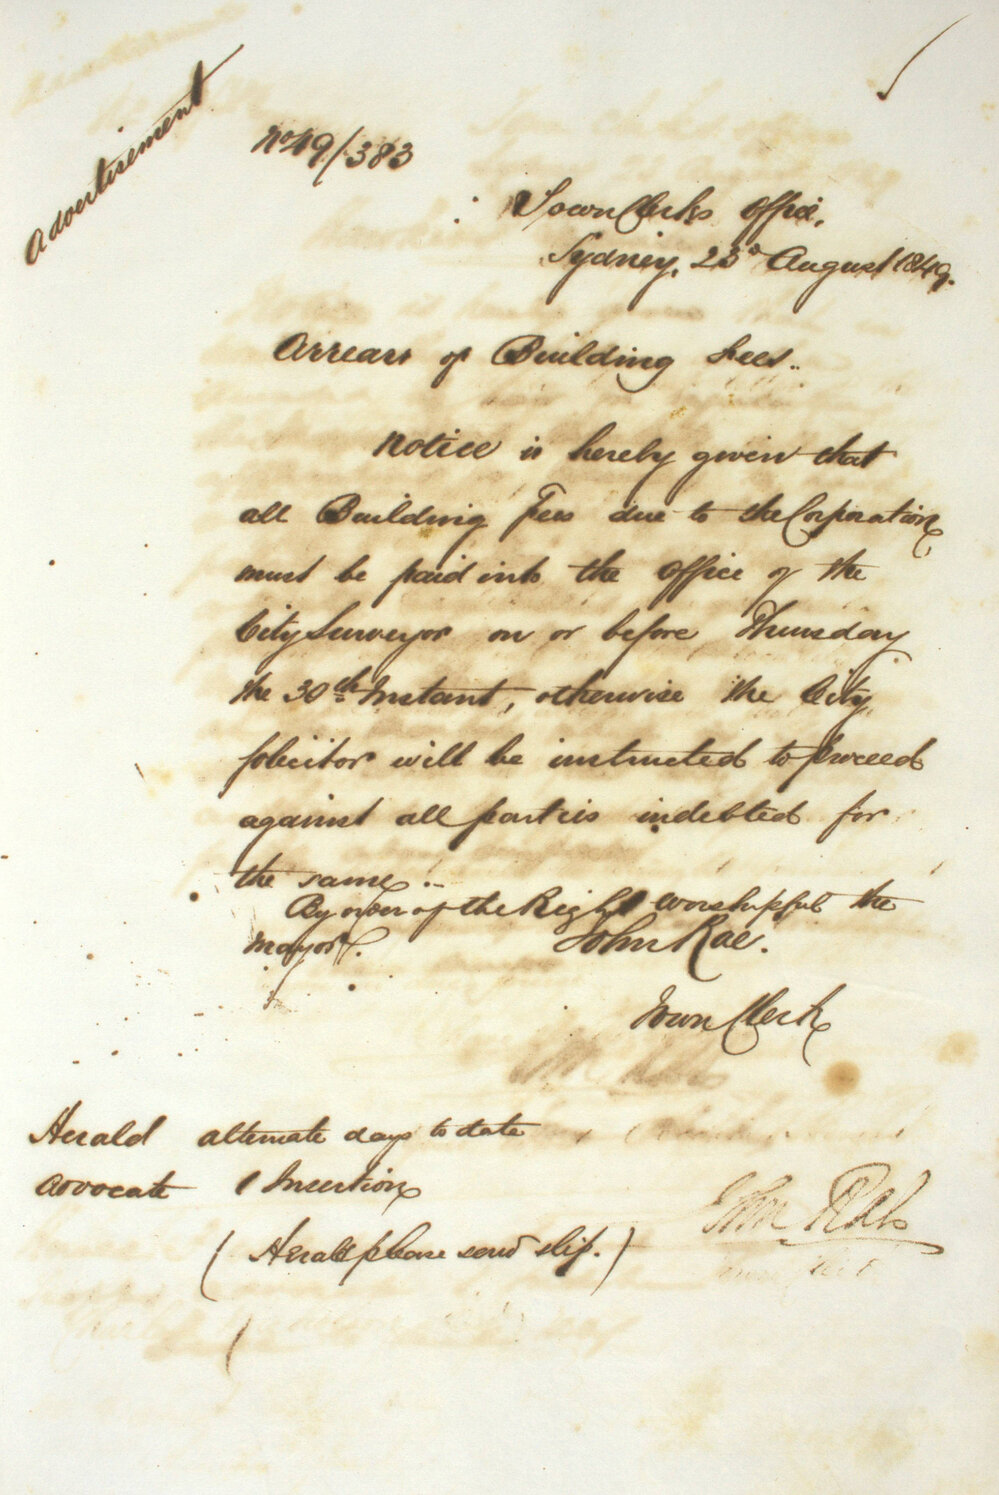 Advertisement
No 49/383
Town Clerks Office,
Sydney, 23d August 1849.
Arrears of Building Fees..
Notice is hereby given that
all Building Fees due to the Corporation,
must be paid into the Office of the
City Surveyor on or before Thursday
the 30th Instant, otherwise the City
Solicitor will be instructed to proceed
against all parties indebted for
the same..
By order of the Right Worshipful the
Mayor.
John Rae.
Town Clerk
Herald alternate days to date
Advocate 1 Insertion
(Herald please send slip.)
John Rae
Town Clerk